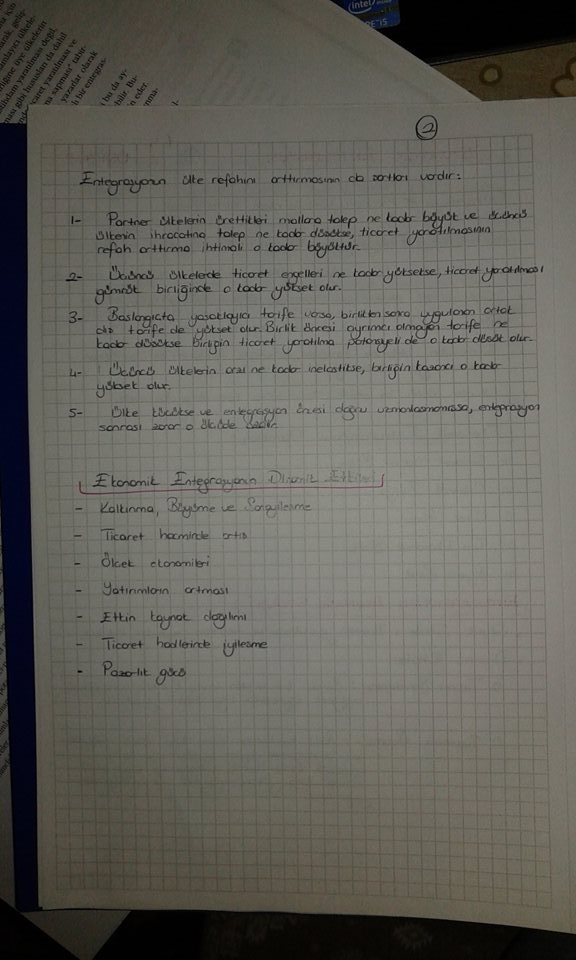 intel
2
Entegrasyonun ülke refahını arttırmasının da şartları vardır:
1- Partner ülkelerin ürettikleri mallara talep ne kadar büyük ve üçüncü
ülkenin ihracatına talep ne kadar düşükse, ticaret yaratılmasının
refah arttırma ihtimali o kadar büyüktür.
2- Üçüncü ülkelerde ticaret engelleri ne kadar yüksekse, ticaret yaratılması
gümrük birliğinde o kadar yüksek olur.
3- Başlangıçta yasaklayıcı tarife varsa, birlikten sonra uygulanan ortak
dış tarife de yüksek olur. Birlik öncesi ayrımcı olmayan tarife ne
kadar düşükse birliğin ticaret yaratılma potansiyeli de o kadar düşük olur.
4- Üçüncü ülkelerin arzı ne kadar inelastikse, birliğin kazancı o kadar
yüksek olur.
5- Ülke küçükse ve entegrasyon öncesi doğru uzmanlaşmamışsa, entegrasyon
sonrası zarar o ölçüde
Ekonomik Entegrasyonun Dinamik Etkileri
- Kalkınma, Büyüme ve Sanayileşme
- Ticaret hacminde artış
- Ölçek ekonomileri
- Yatırımların artması
- Etkin kaynak dağılımı
- Ticaret hadlerinde iyileşme
- Pazarlık gücü